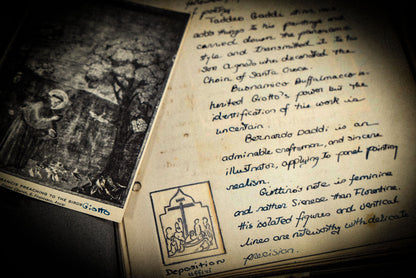 poetry.
Taddeo Gaddi
adds things to his paintings and
carried down the
style and transmitted it to
son Agnolo who decorated the
Choir of Santa Croce.
Buonamico Buffalmacco in-
herited Giotto's power but the
identification of his work is
uncertain.
Bernardo Daddi is an
admirable craftsman, and sincere
illustrator, applying to panel painting
realism.
Giottino's note is feminine
and rather Sienese than Florentine.
His isolated figures and vertical
lines are noteworthy with delicate
precision.
PREACHING TO THE BIRDS
Giotto
Deposition